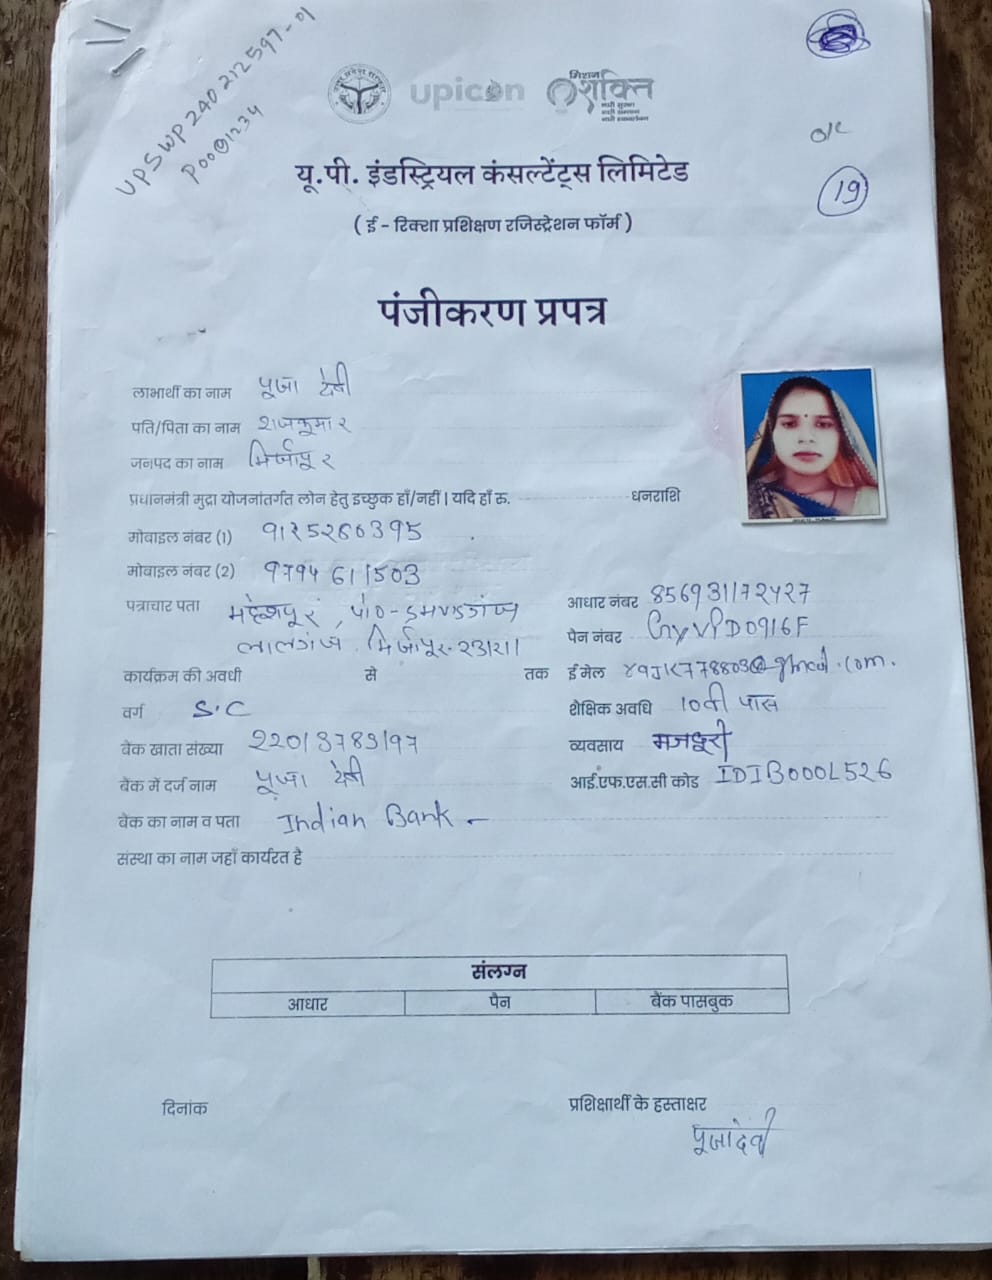 UPSWP240212597-01
P00@1234
upicon
मिशन
शक्ति
नारी सुरक्षा
नारी सम्मान
नारी स्वावलम्बन
19
यू.पी. इंडस्ट्रियल कंसल्टेंट्स लिमिटेड
( ई - रिक्शा प्रशिक्षण रजिस्ट्रेशन फॉर्म )
पंजीकरण प्रपत्र
लाभार्थी का नाम पूजा देवी
पति/पिता का नाम राजकुमार
जनपद का नाम मिर्जापुर
प्रधानमंत्री मुद्रा योजनांतर्गत लोन हेतु इच्छुक हाँ/नहीं। यदि हाँ रु. धनराशि
मोबाइल नंबर (1) 9125260395
मोबाइल नंबर (2) 9794611503
पत्राचार पता महेशपुर, पो0-
लालगंज. मिर्जापुर. 231211
आधार नंबर 856931172427
पैन नंबर
कार्यक्रम की अवधी से तक ई मेल
वर्ग S.C
शैक्षिक अवधि 10वी पास
बैंक खाता संख्या 22013783197
व्यवसाय मजदूरी
बैंक में दर्ज नाम पूजा देवी
आई.एफ.एस.सी कोड IDIB000L526
बैंक का नाम व पता Indian Bank -
संस्था का नाम जहाँ कार्यरत है
संलग्न
आधार पैन बैंक पासबुक
दिनांक
प्रशिक्षार्थी के हस्ताक्षर
पूजा देवी